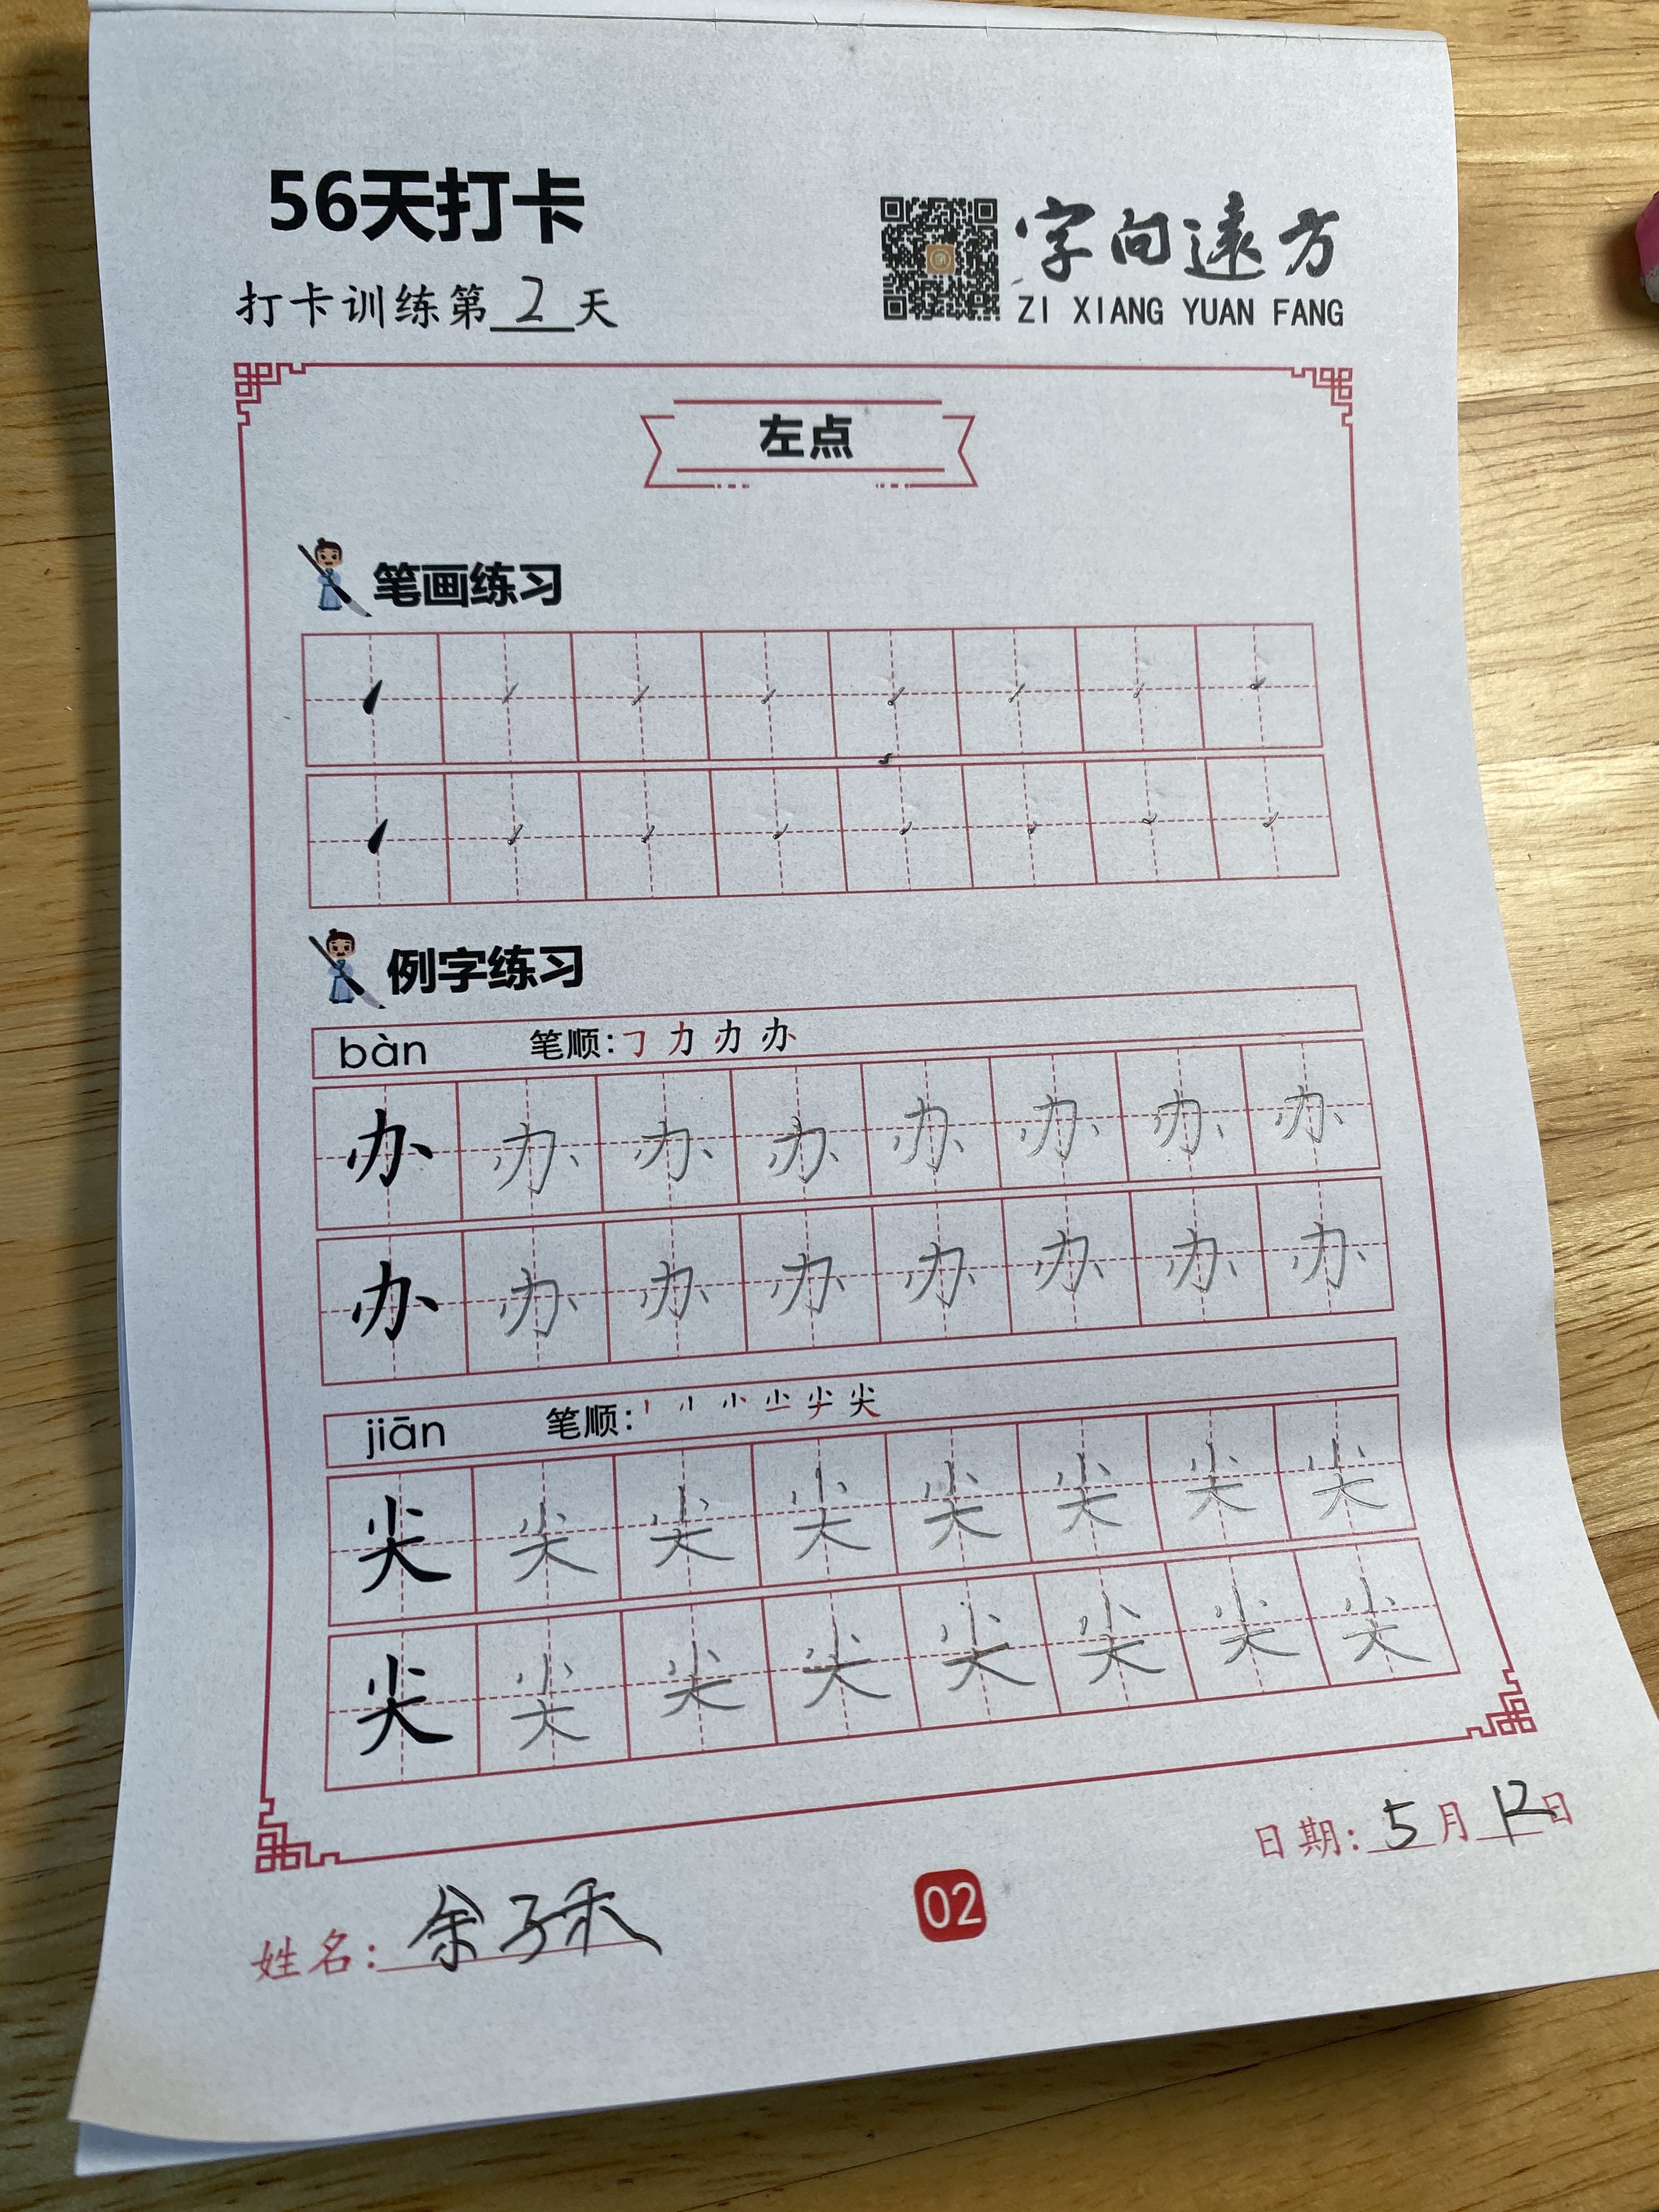 56天打卡
字向遠方
打卡训练第2天
ZI XIANG YUAN FANG
左点
笔画练习
例字练习
bàn 笔顺: ㇆ 力 办 办
办 办 办 办 办 办 办 办
办 办 办 办 办 办 办 办
jiān 笔顺: 丨 小 尖
尖 尖 尖 尖 尖 尖 尖 尖
尖 尖 尖 尖 尖 尖 尖 尖
日期: 5月12日
02
姓名: 余子禾